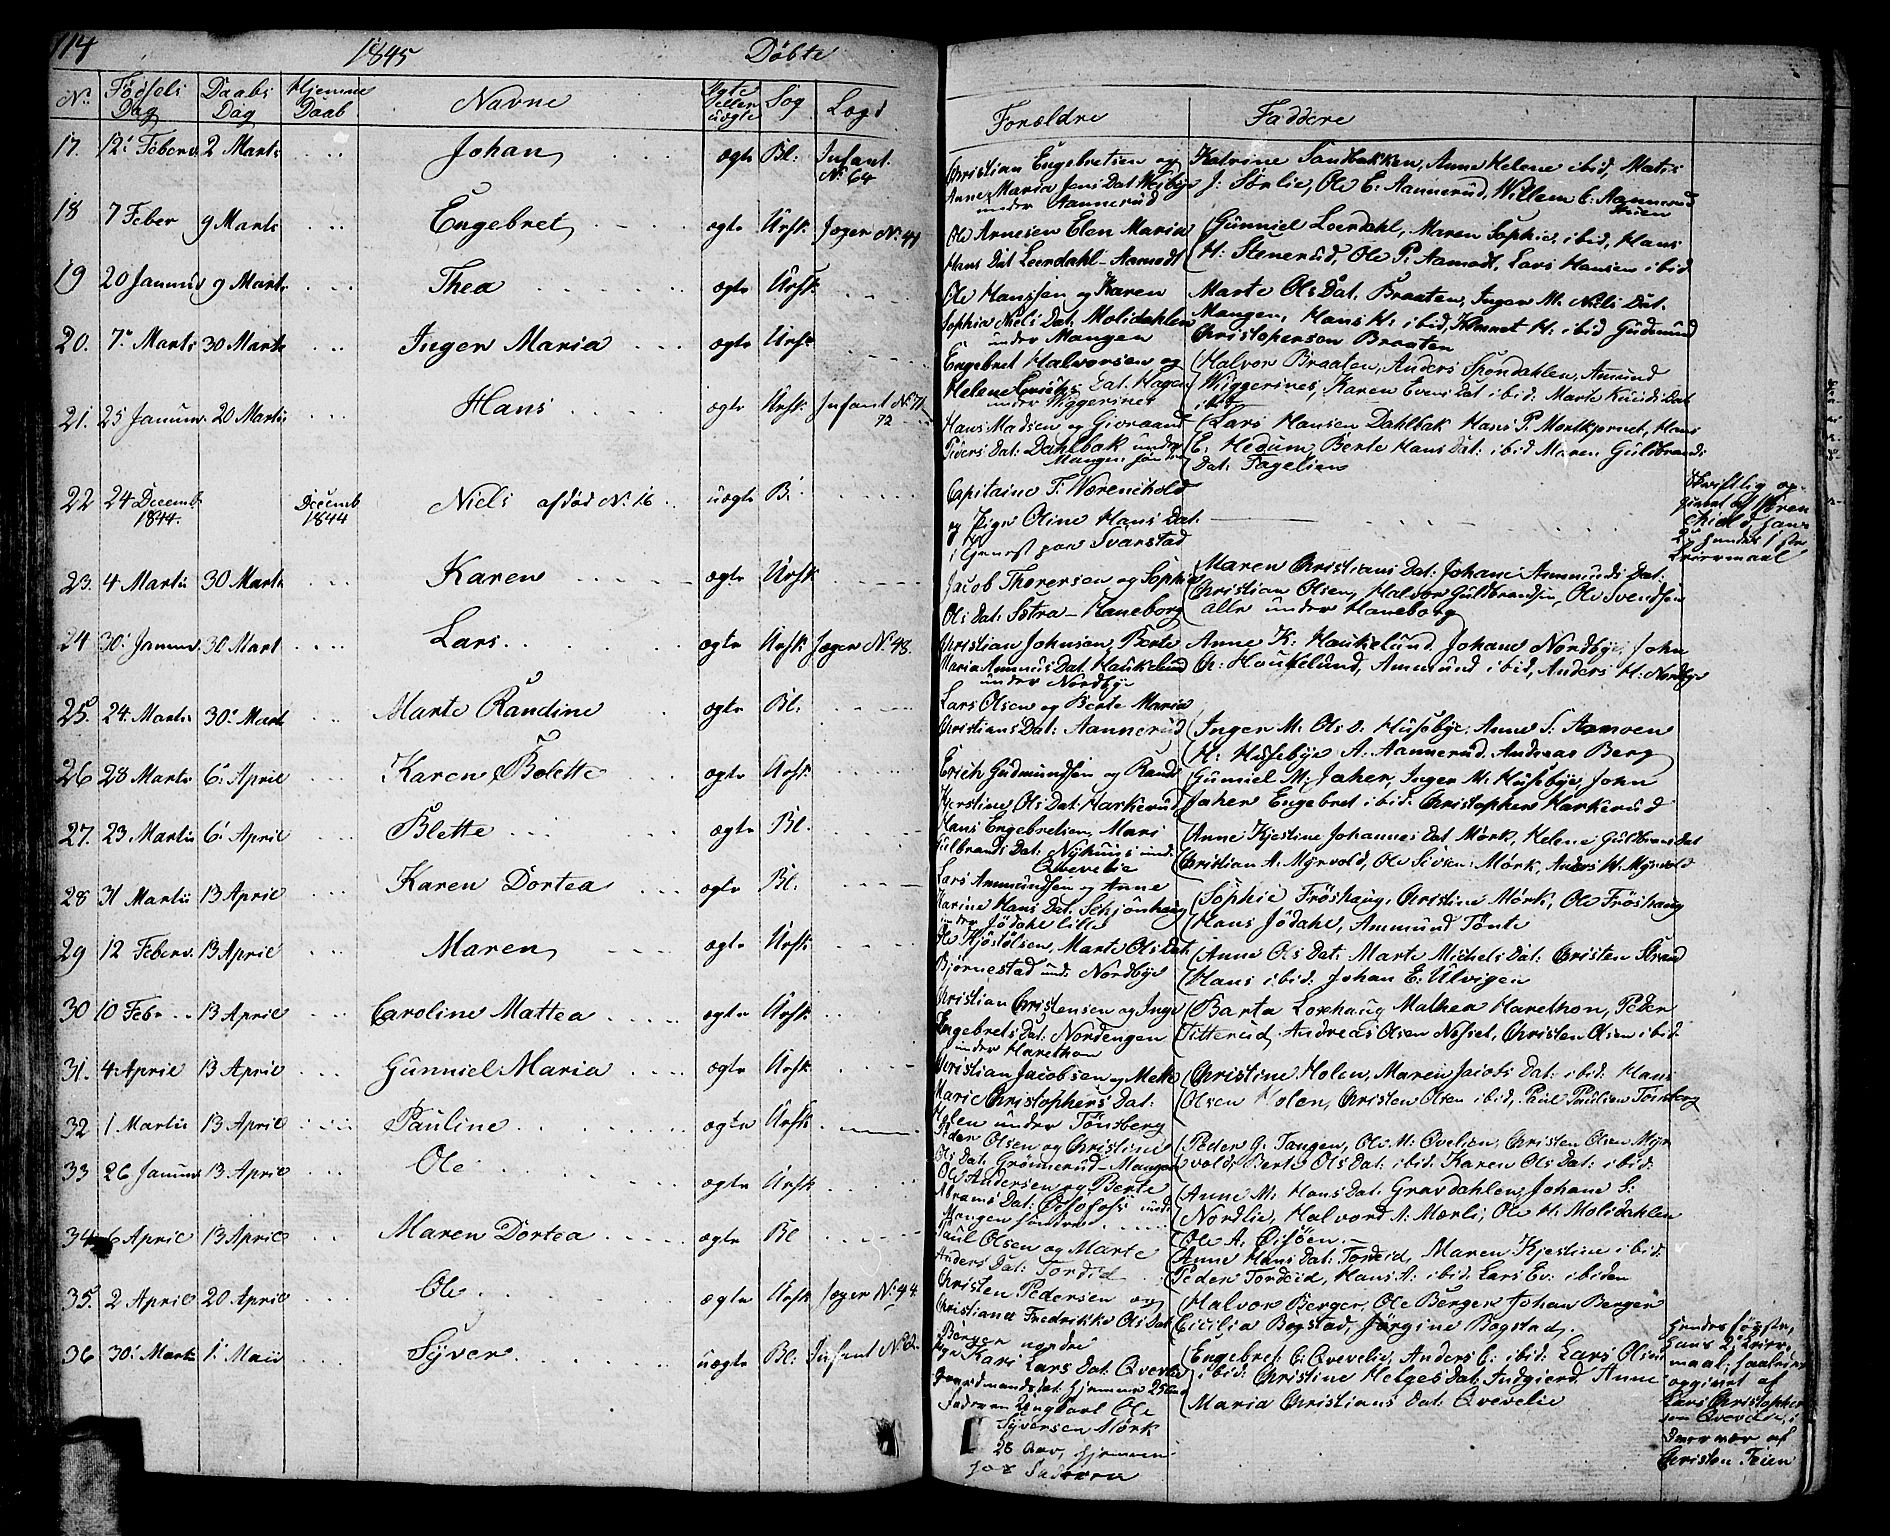 114 1845 Döbte
No. Födsels Dag Daabs Dag Hjemme Daab Navne Ægte eller uægte Sog Lægd Forældre Faddere
17. 12' Feberv. 2 Marts Johan ægte Bl: Infant. No. 64
Christian Engebretsen og
Anne Maria Jens Dat
under Aannerud
Katrine Sandbakken, Anne Helene ibid, Matis
J. Sørlie, Ole E. Aannerud, Willem E. Aannerud
18 7 Feber 9 Marts Engebret ægte Ursk. Jæger No. 41
Ole Arnesen Elen Maria
Hans Dat Leerdahl-Aamodt
Gunniel Leerdahl, Maren Sophie ibid, Hans
H. Stenerud, Ole P. Aamodt, Lars Hansen ibid
19 20 Januar 9 Marts Thea ægte Ursk.
Ole Hanssen og Karen
Sophia Niels Dat. Molidahlen
under Mangen
Marte Ols Dat. Braaten, Inger M. Niels Dat.
Mangen, Hans H. ibid, H. ibid Gudmund
Christophersen Braaten
20. 7. Marts 30 Marts Inger Maria ægte Ursk
Engebret Halvorsen og
Helene Dat. Hagen
under Wiggerines
Halvor Braaten, Anders Spondahlen, Amund
Wiggerines, Karen Evens Dat ibid. Marte Knuds Dat
ibid
21. 25 Januar. 20 Marts Hans ægte Ursk. Infant No. 71
72
Hans Madsen og
Peders Dat: Dahlbak under
Mangen
Lars Hansen Dahlbak Hans P. Mortkjernet, Hans
E. Hedum, Berte Hans Dat: ibid Maren Guldbrands
Dat. Fagelien
22 24 Decemb 1844. Decemb 1844 Niels afdød No. 16 uægte Bl
Capitaine T. Værenskold
og Pige Oline Hans Dat.
i Svarstad
23. 4 Marts 30 Marts Karen ægte Ursk
Jacob Thoresen og Sophie
Ols Dat: Haneborg
Maren Christians Dat: Johane Ammunds Dat:
Christian Olsen, Halvor Guldbrandsen, Ole Svendsen
alle under Haneborg
24 30' Januar. 30 Mart Lars ægte Ursk Jæger No. 48.
Christian Johnsen, Berte
Maria Ammunds Dat. Haukelund
under Nordbye
Anne K. Haukelund. Johane Nordbye, John
Ch. Haukelund, Ammund ibid, Anders H. Nordbye
25. 24. Marts 30. Mart Marte Randine ægte Bl.
Lars Olsen og Berte Maria
Christians Dat: Aannerud
Inger M. Ols D. Husebye. Anne S. Aamoen
H. Husebye A. Aannerud. Andreas Berg
26 28 Marts 6. April Karen Bolette ægte Ursk.
Erich Gudmundsen og Randi
Kjerstine Ols Dat: Harkerud
Gunniel M. Jaher, Inger M. Husebye, John
Jaher Engebret ibid. Christopher Harkerud
27. 23 Marts 6. April Blette ægte Bl.
Hans Engebretsen, Mari
Gulbrands Dat. Nyhuus und.
Qvevelie
Anne Kjestine Johannes Dat Mørk, Helene Guldbrands Dat
Christian A. Myrvold, Ole Sivsen Mørk, Anders W. Myrvold
28 31 Marts 13 April Karen Dortea ægte Bl.
Lars Ammundsen og Anne
Karine Hans Dat. Schjønhaug
under Jödahl lille
Sophie Fröshaug, Christine Mørk, Ole Fröshaug
Hans Jödahl, Ammund Tönte
29 12 Feberv. 13 April Maren ægte Ursk.
Ole Kjöstolsen, Marte Ols Dat.
Bjørnestad und: Nordbye
Anne Ols Dat: Marte Michels Dat: Christen Strand
Hans ibid: Johan E. Ulvigen
30 10 Febr. 13 April Caroline Mattea ægte Ursk.
Christian Christensen og Inge
Engebrets Dat. Nordengen
under Harethon
Barta Loshaug Mathea Harethon, Peder
Titterud, Andreas Olsen Nøsset, Christen Olsen ibid
31. 4. April 13 April Gunniel Maria ægte Ursk.
Christian Jacobsen og Mette
Marie Christophers Dat:
Holen under Tönsberg
Christine Holen, Maren Jacobs Dat: ibid: Hans
Olsen Holen, Christen Olsen ibid, Paul Paulsen Tönsberg
32 1 Marts 13 April Pauline ægte Ursk.
Peder Olsen og Christine
Ols Dat. Grönnerud-Mangen
Peder G. Tangen, Ole M. Qvelien, Christen Olsen Myr
vold, Berte Ols Dat: ibid. Karen Ols Dat: ibid.
33 26 Januar 13 April Ole ægte Ursk
Ole Andersen og Berte
Abrams Dat:
Mangen
Anne M. Hans Dat. Gravdahlen, Johane S.
Nordlie, Halvord A. Mærli, Ole H. Molidahlen
Ole A.
34. 6 April 13 April Maren Dortea ægte Bl
Paul Olsen og Marte
Anders Dat: Tordeid
Anne Hans Dat: Tordeid, Maren Kjestine ibid:
Peder Tordeid, Hans A. ibid: Lars Ev: ibiden
35. 2 April 20 April Ole ægte Ursk Jæger No. 44.
Christen Pedersen og
Christiane Fredrikke Ols Dat
Berger nordre
Halvor Berger, Ole Berger Johan Berger
Cicilia Bogstad, Jørgine Bogstad.
36 30' Marts 1' Maii Syver uægte Bl: Infant No. 62.
Pige Kari Lars Dat. Qvevelie
hjemme 25 Aar
Faderen Ungkarl Ole
Syversen Mørk
28 Aar, hjemme
hos Faderen
Engebret C. Qvevelie, Anders C. ibid: Lars Olsen
ibid: Christine Helges Dat. Indgierd Anne
Maria Christians Dat. Qvevelie
Lars Christopher
sen Qvevelie, i
af
Christen Feien